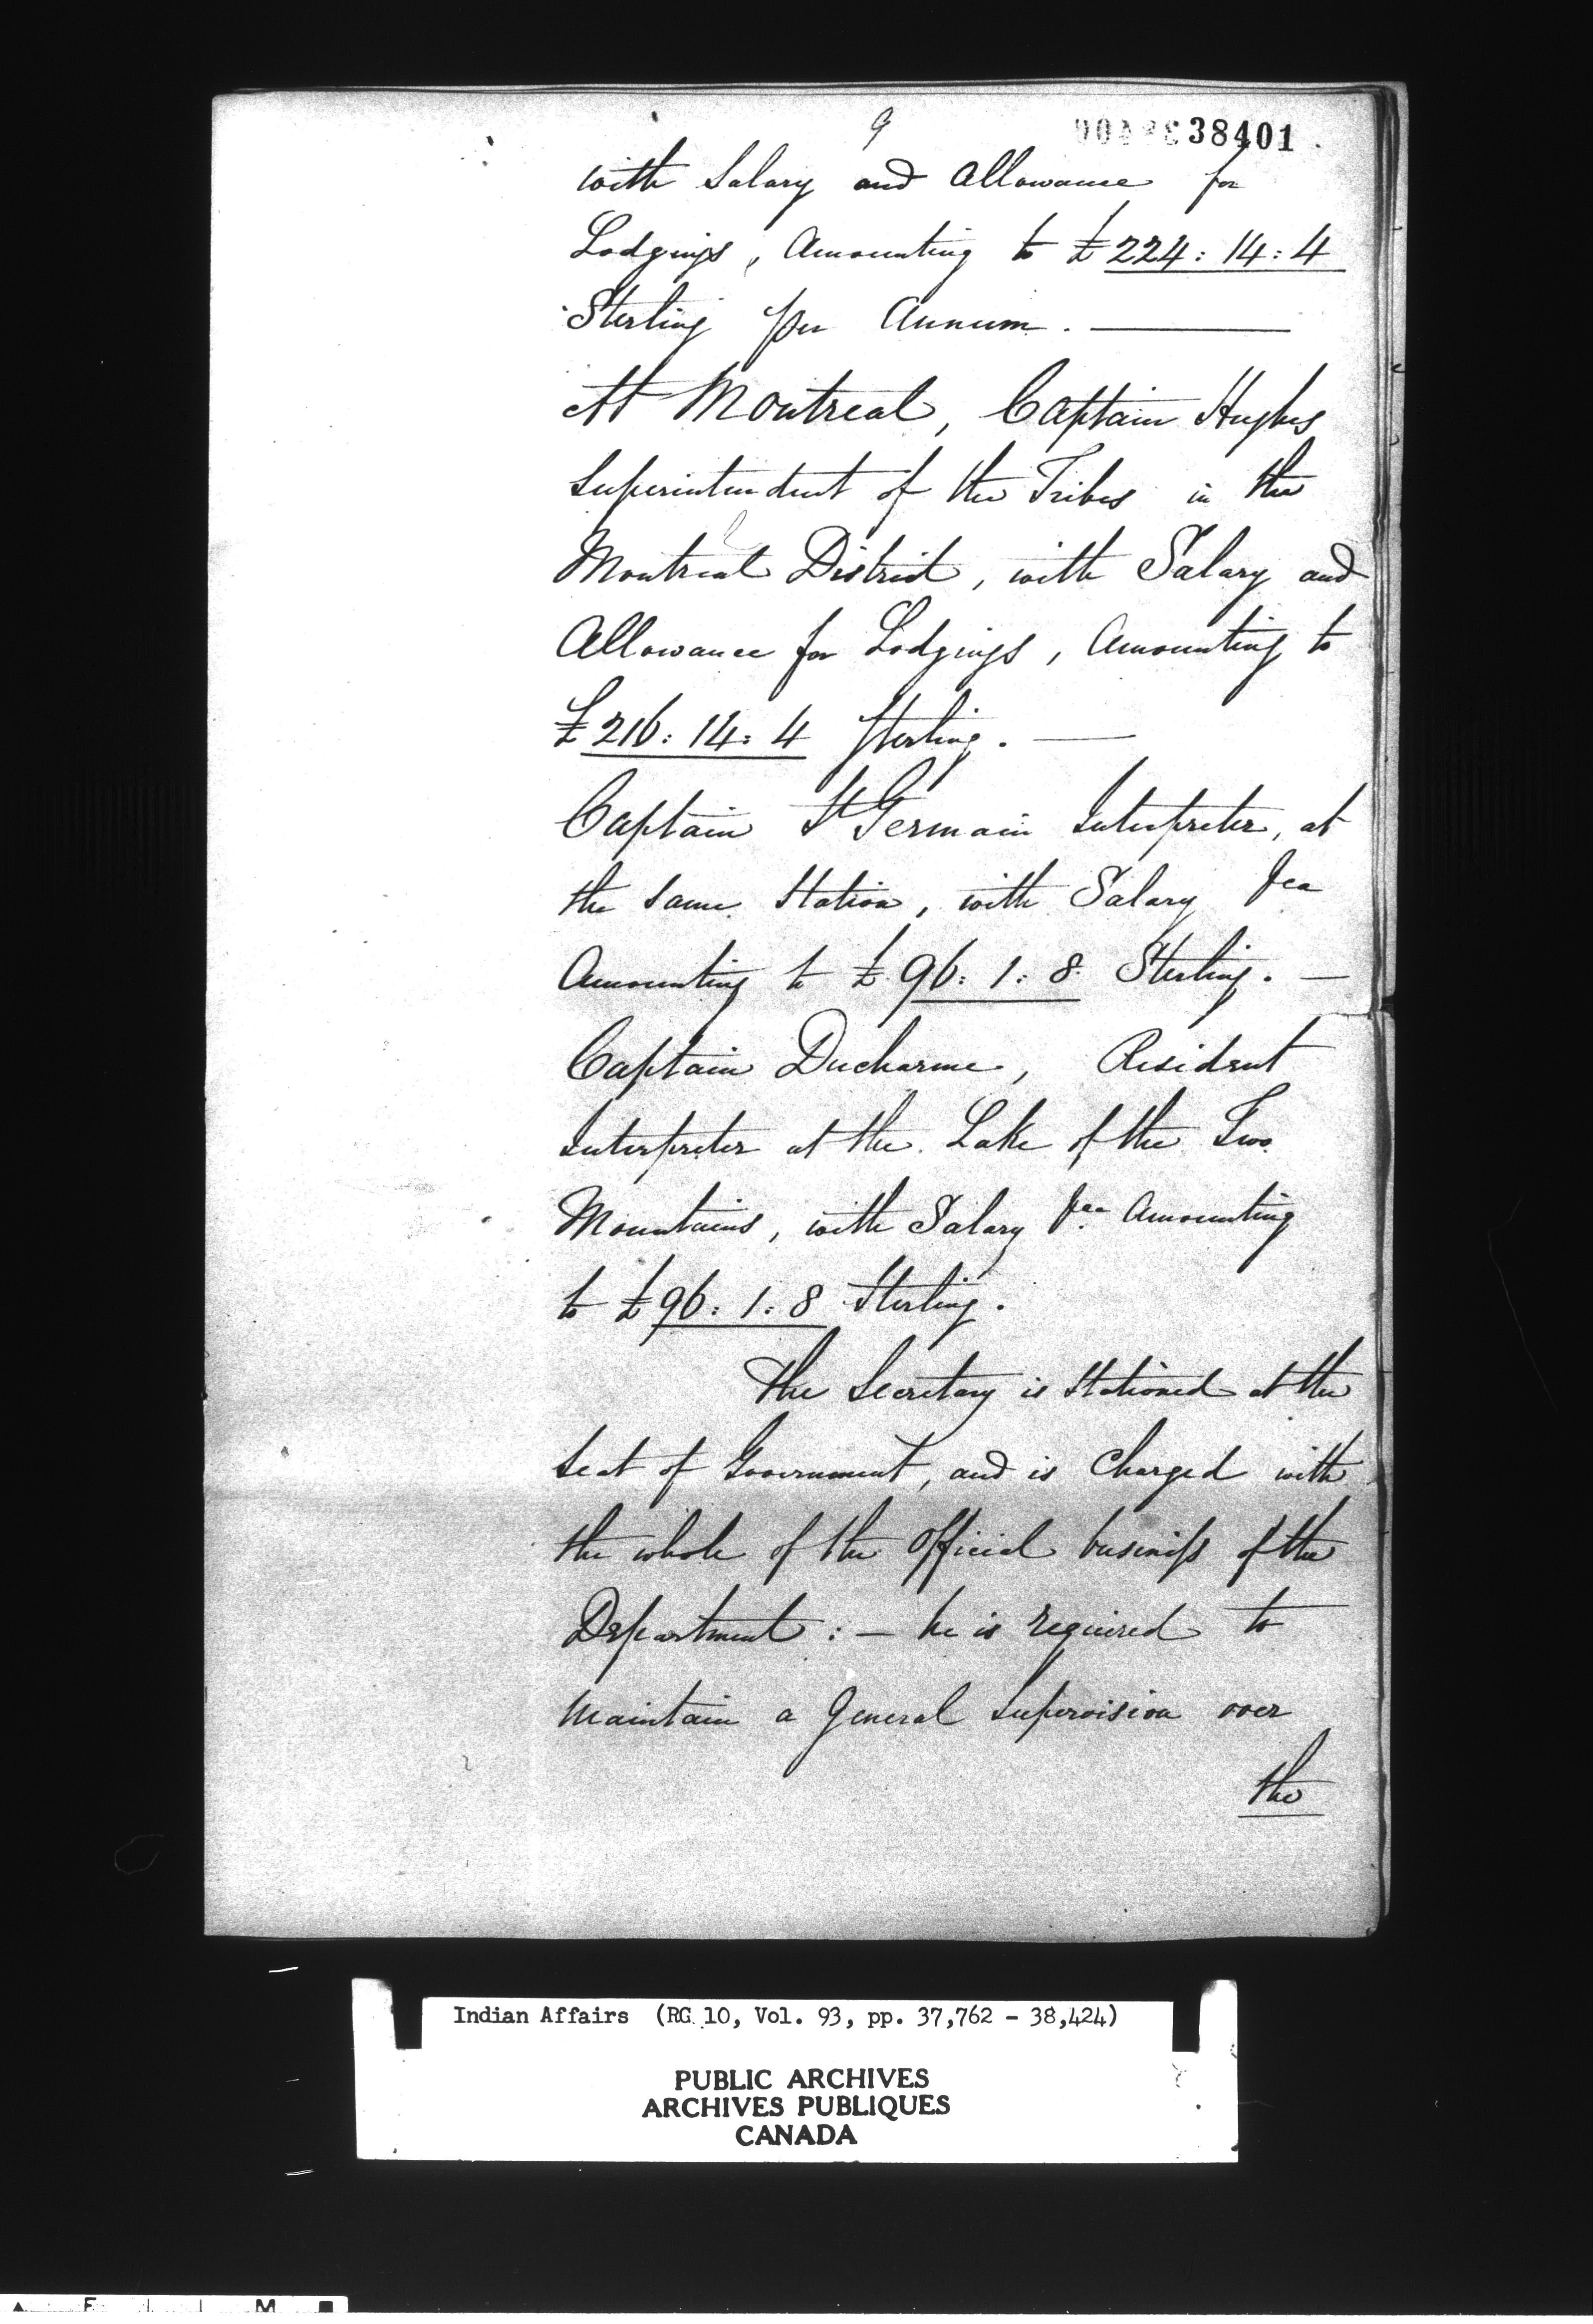 9
38401
with Salary and Allowance for
Lodgings, Amounting to £224:14:4
Sterling per Annum. —
At Montreal, Captain Hughes
Superintendent of the Tribes in the
Montreal District, with Salary and
Allowance for Lodgings, Amounting to
£216:14:4 Sterling. —
Captain St Germain Interpreter, at
the same Station, with Salary &ca
Amounting to £96:1:8 Sterling. —
Captain Ducharme, Resident
Interpreter at the Lake of the Two
Mountains, with Salary &ca Amounting
to £96:1:8 Sterling.
The Secretary is Stationed at the
Seat of Government, and is Charged with
the whole of the Official business of the
Department :— he is required to
Maintain a General Supervision over
the
Indian Affairs (RG 10, Vol. 93, pp. 37,762 - 38,424)
PUBLIC ARCHIVES
ARCHIVES PUBLIQUES
CANADA